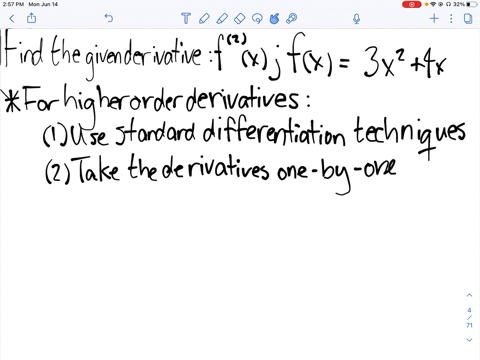 2:57 PM Mon Jun 14
32%
Find the given derivative: f⁽²⁾(x); f(x) = 3x² + 4x
*For higher order derivatives:
(1) Use standard differentiation techniques
(2) Take the derivatives one-by-one
4
/
71